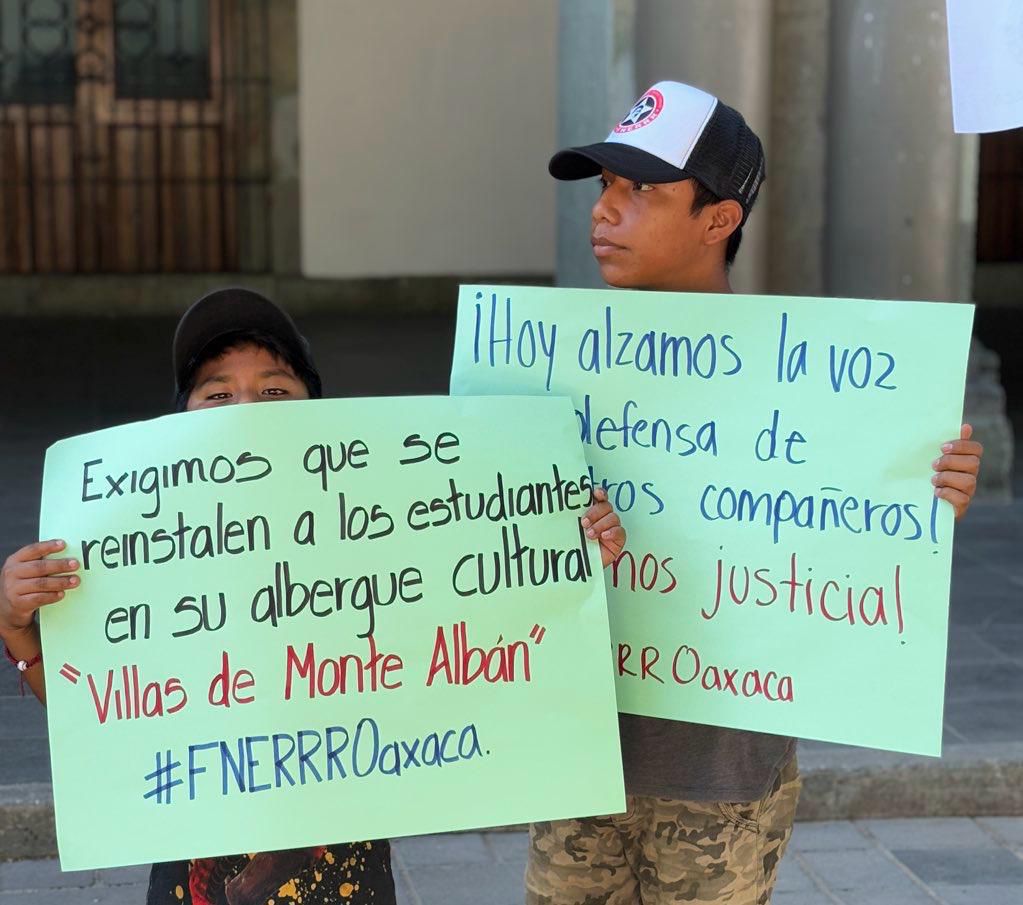 Exigimos que se
reinstalen a los estudiantes
en su albergue cultural
"Villas de Monte Albán"
#FNERRROaxaca.
¡Hoy alzamos la voz
defensa de
ros compañeros!
mos justicia!
RROaxaca